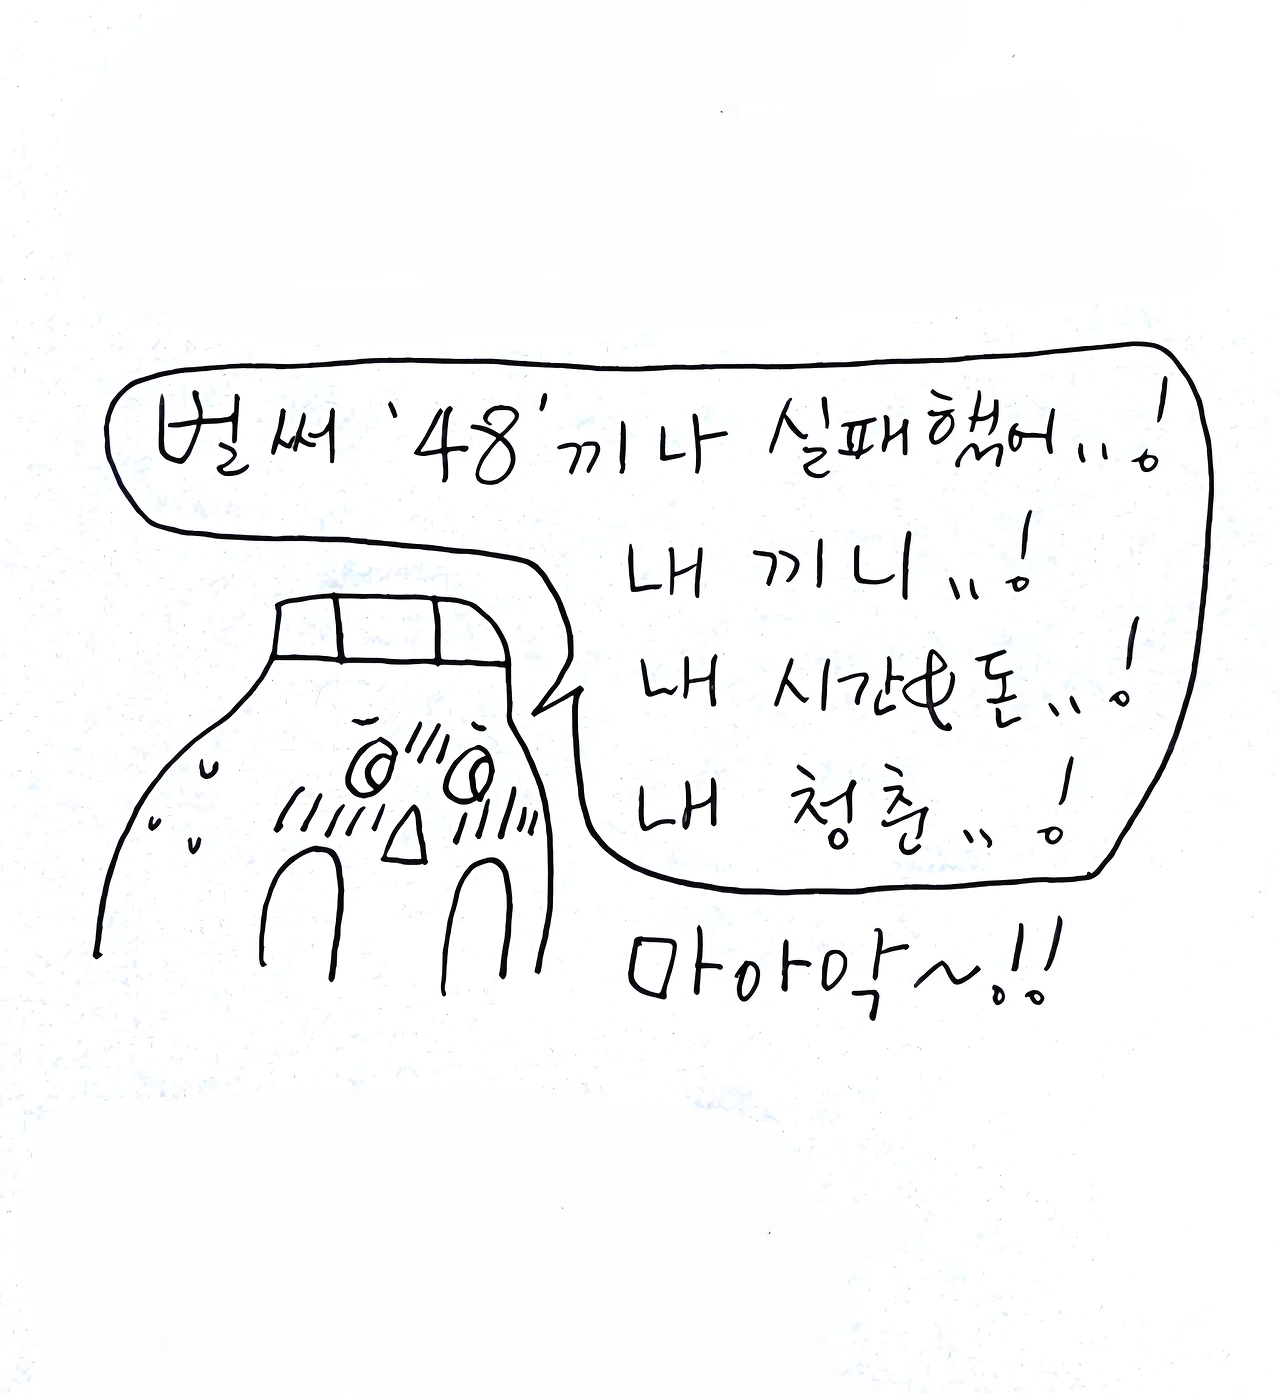 벌써 '48'끼나 실패했어..!
내 끼니..!
내 시간&돈..!
내 청춘..!
마아악~!!